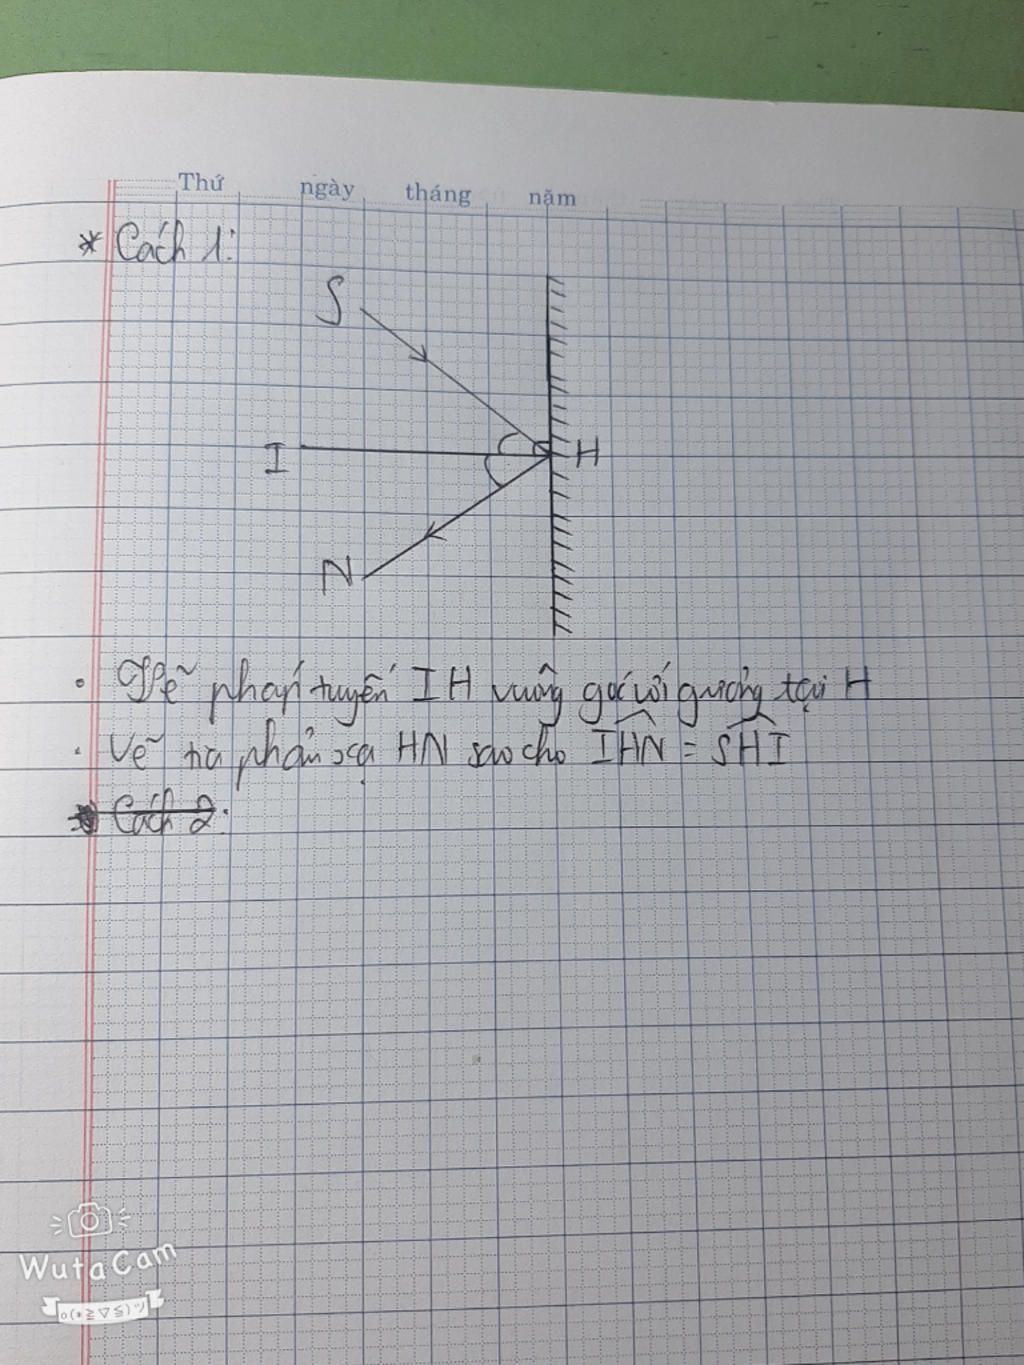 Thứ ngày tháng năm
* Cách 1:
S
I H
N
• Vẽ pháp tuyến IH vuông góc với gương tại H
• Vẽ tia phản xạ HN sao cho IHN = SHI
Cách 2:
WutaCam
o(*≧▽≦)ツ